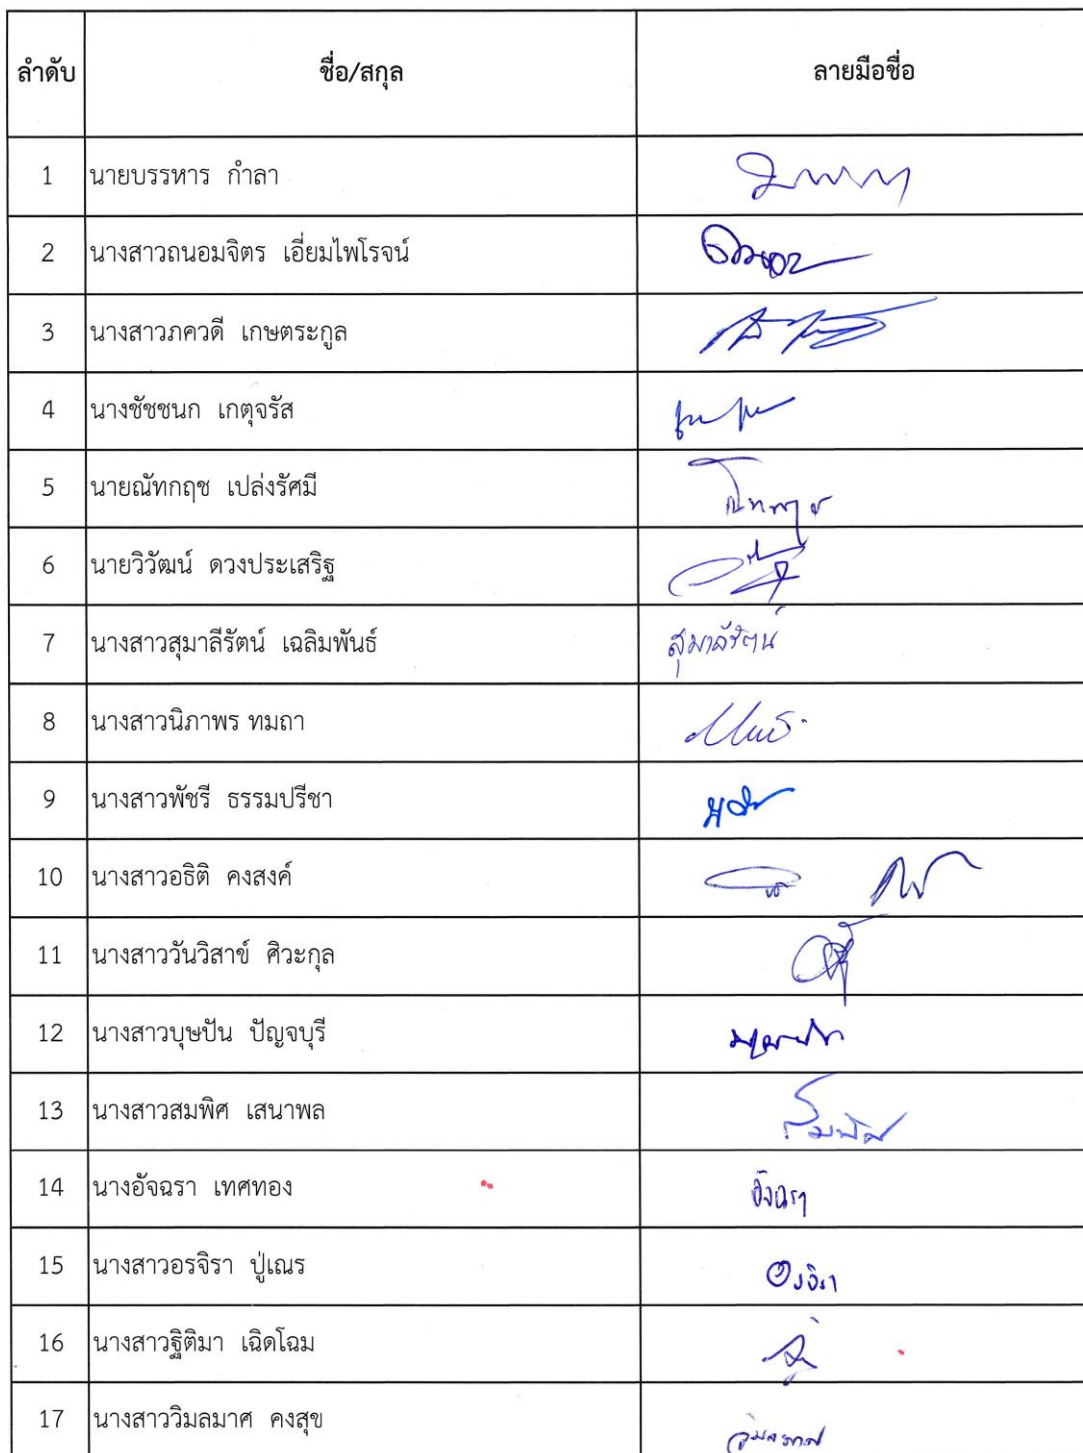 ลำดับ ชื่อ/สกุล ลายมือชื่อ
1 นายบรรหาร กำลา
2 นางสาวถนอมจิตร เอี่ยมไพโรจน์
3 นางสาวภควดี เกษตระกูล
4 นางชัชชนก เกตุจรัส
5 นายณัทกฤช เปล่งรัศมี
6 นายวิวัฒน์ ดวงประเสริฐ
7 นางสาวสุมาลีรัตน์ เฉลิมพันธ์ สุมาลีรัตน์
8 นางสาวนิภาพร ทมถา
9 นางสาวพัชรี ธรรมปรีชา
10 นางสาวอธิติ คงสงค์
11 นางสาววันวิสาข์ ศิวะกุล
12 นางสาวบุษปัน ปัญจบุรี
13 นางสาวสมพิศ เสนาพล สมพิศ
14 นางอัจฉรา เทศทอง อัจฉรา
15 นางสาวอรจิรา ปู่เณร อรจิรา
16 นางสาวฐิติมา เฉิดโฉม
17 นางสาววิมลมาศ คงสุข วิมลมาศ